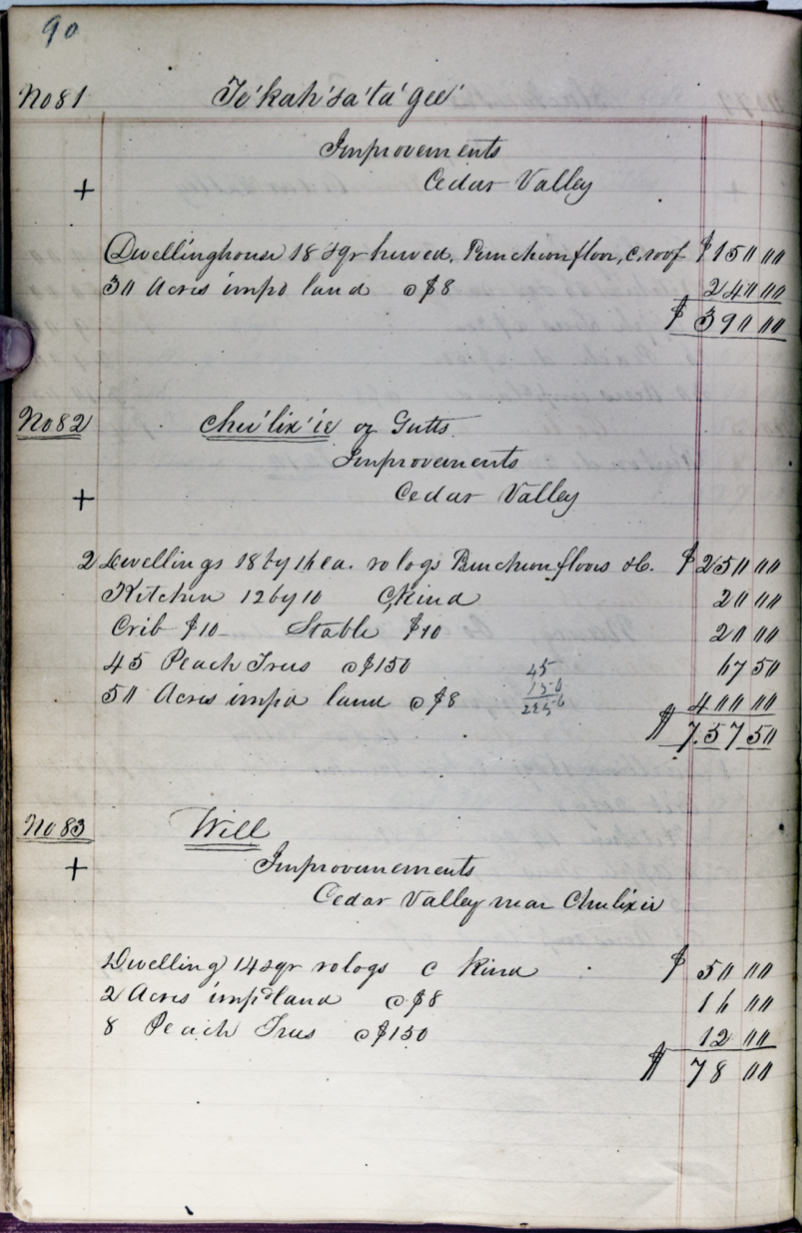 90
No 81 Te'kah'sa'ta'gee'
Improvements
+ Cedar Valley
Dwellinghouse 18 sqr hewed, Puncheon floor, c. roof $150 00
30 Acres impd land @ $8 240 00
$ 390 00
No 82 Chu'lix'ie or Gutts
Improvements
+ Cedar Valley
2 Dwellings 18 by 16 ea. ro logs Puncheon floors &c. $ 250 00
Kitchen 12 by 10 C kind 20 00
Crib $10 Stable $10 20 00
45 Peach Trees @ $150 67 50
45
150
2250
50 Acres impd land @ $8 400 00
$ 757 50
No 83 Will
+ Improvements
Cedar Valley near Chulixie
1 Dwelling 14 sqr ro logs c kind $ 50 00
2 Acres impd land @ $8 16 00
8 Peach Trees @ $150 12 00
$ 78 00